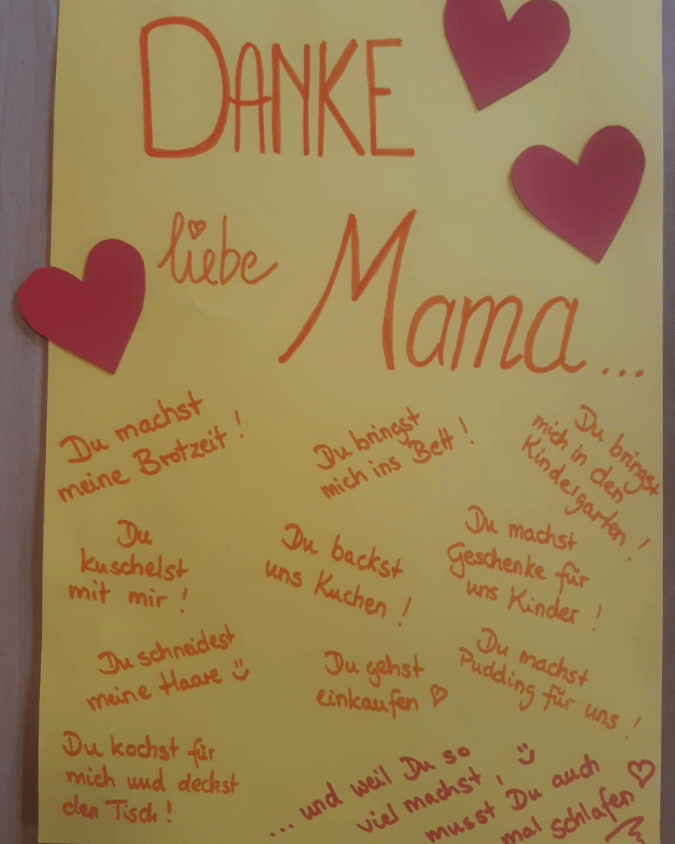 DANKE
liebe
Mama...
Du machst
meine Brotzeit!
Du bringst
mich ins Bett!
Du bringst
mich in den
Kindergarten!
Du
kuschelst
mit mir!
Du backst
uns Kuchen!
Du machst
Geschenke für
uns Kinder!
Du schneidest
meine Haare
Du gehst
einkaufen
Du machst
Pudding für uns!
Du kochst für
mich und deckst
den Tisch!
... und weil Du so
viel machst,
musst Du auch
mal schlafen